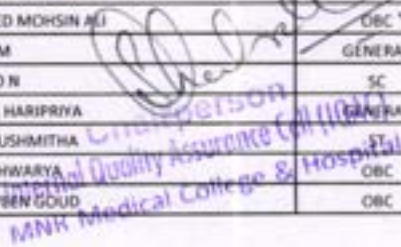 ED MOHSIN ALI OBC
M GENERA
D N SC
HARIPRIYA GENERA
USHMITHA ST
HWARYA OBC
BEN GOUD OBC
Chairperson
Internal Quality Assurance Cell (IQAC)
MNR Medical College & Hospital